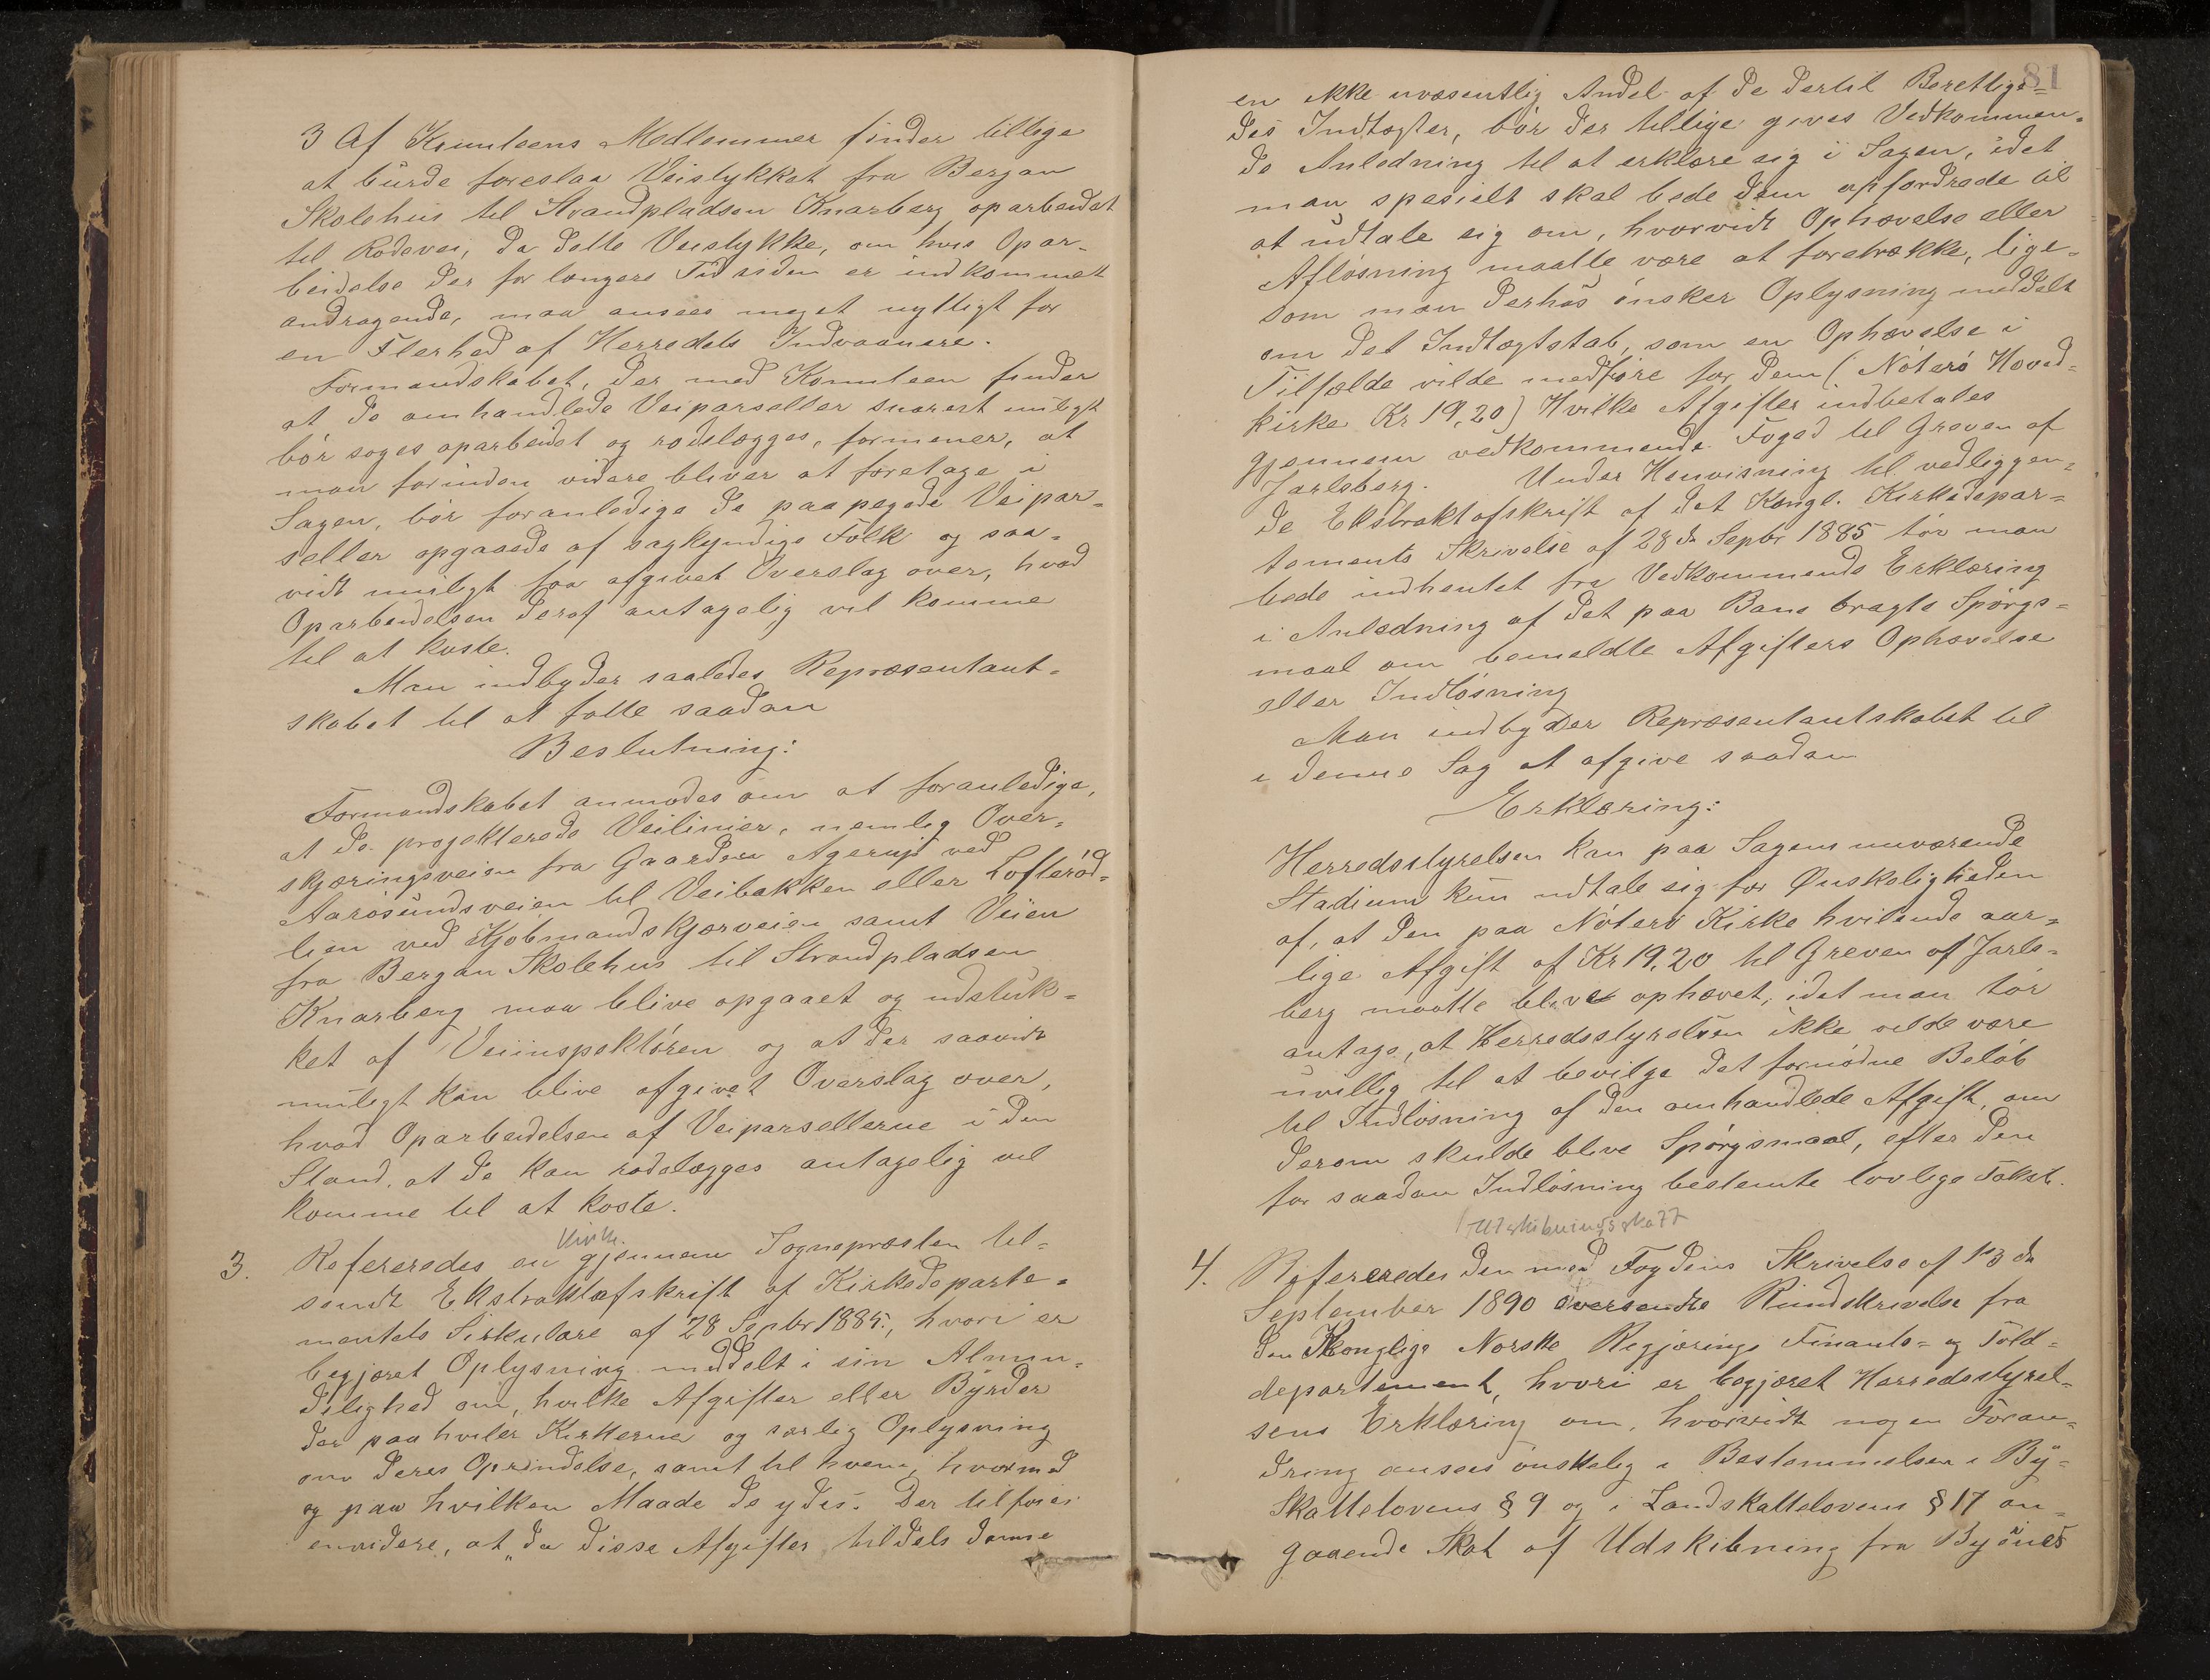 3 Af Komiteens Medlemmer finder tillige
at burde foreslaa Veistykket fra Bergan
Skolehus til Strandpladsen Knarberg oparbeidet
til Rodevei, da dette Veistykke, om hvis Opar-
beidelse der for længere Tid siden er indkommet
andragende, maa ansees meget nyttigt for
en Flerhed af Herredets Indvaanere.
Formandskabet, der med Komiteen finder
at de omhandlede Veiparseller snarest muligt
bør søges oparbeidet og rodelægges, formener, at
man forinden videre bliver at foretage i
Sagen, bør foranledige de paapegede Veipar=
seller opgaaede af sagkyndige Folk og saa=
vidt muligt faa afgivet Overslag over, hvad
Oparbeidelsen deraf antagelig vil komme
til at koste.
Man indbyder saaledes Repræsentant=
skabet til at fatte saadan
Beslutning:
Formandskabet anmodes om at foranledige,
at de projekterede Veilinier, nemlig Over=
skjæringsveien fra Gaarden Agerup ved
Aarøsundsveien til Veibakken eller Lofterød=
lien ved Kjøbmandskjærveien samt Veien
fra Bergan Skolehus til Strandpladsen
Knarberg maa blive opgaaet og udstuk=
ket af Veiinspektøren og at der saavidt
muligt kan blive afgivet Overslag over,
hvad Oparbeidelsen af Veiparsellerne i den
Stand, at de kan rodelægges antagelig vil
komme til at koste.
Kirke.
3. Refereredes en gjennem Sognepræsten til=
sendt Ekstraktafskrift af Kirkedeparte=
mentets Sirkulære af 28 Septbr 1885, hvori er
begjæret Oplysning meddelt i sin Almin=
delighed om, hvilke Afgifter eller Byrder
der paahviler Kirkerne og særlig Oplysning
om deres Oprindelse, samt til hvem, hvormed
og paa hvilken Maade de ydes. Der tilføies
envidere, at "da disse Afgifter tildels danne
81
en ikke uvæsentlig Andel af de dertil Berettige=
des Indtægter, bør der tillige gives Vedkommen=
de Anledning til at erklære sig i Sagen, idet
man spesielt skal bede dem opfordrede til
at udtale sig om, hvorvidt Ophævelse eller
Afløsning maatte være at foretrække, lige=
som man derhos ønsker Oplysning meddelt
om det Indtægtstab, som en Ophævelse i
Tilfælde vilde medføre for dem (Nøterø Hoved=
kirke Kr 19,20) Hvilke Afgifter indbetales
gjennem vedkommende Foged til Greven af
Jarlsberg. Under Henvisning til vedliggen=
de Ekstraktafskrift af det Kongl. Kirkedepar=
tements Skrivelse af 28de Septbr 1885 tør man
bede indhentet fra Vedkommende Erklæring
i Anledning af det paa Bane bragte Spørgs=
maal om bemeldte Afgifters Ophævelse
eller Indløsning
Man indbyder Repræsentantskabet til
i denne Sag at afgive saadan
Erklæring:
Herredsstyrelsen kan paa Sagens nuværende
Stadium kun udtale sig for Ønskeligheden
af, at den paa Nøterø Kirke hvilende aar=
lige Afgift af Kr 19,20 til Greven af Jarls=
berg maatte blive ophævet, idet man tør
antage, at Herredsstyrelsen ikke vilde være
uvillig til at bevilge det fornødne Beløb
til Indløsning af den omhandlede Afgift, om
derom skulde blive Spørgsmaal, efter den
for saadan Indløsning bestemte lovlige Takst.
Utskibningsskatt
4. Refereredes den med Fogdens Skrivelse af 13 ds
September 1890 oversendte Rundskrivelse fra
den Kongelige Norske Regjerings Finants= og Told=
departement, hvori er begjæret Herredsstyrel=
sens Erklæring om, hvorvidt nogen Foran=
dring ansees ønskelig i Bestemmelsen i By=
skattelovens § 9 og i Landskattelovens § 17 an=
gaaende Skat af Udskibning fra Byernes